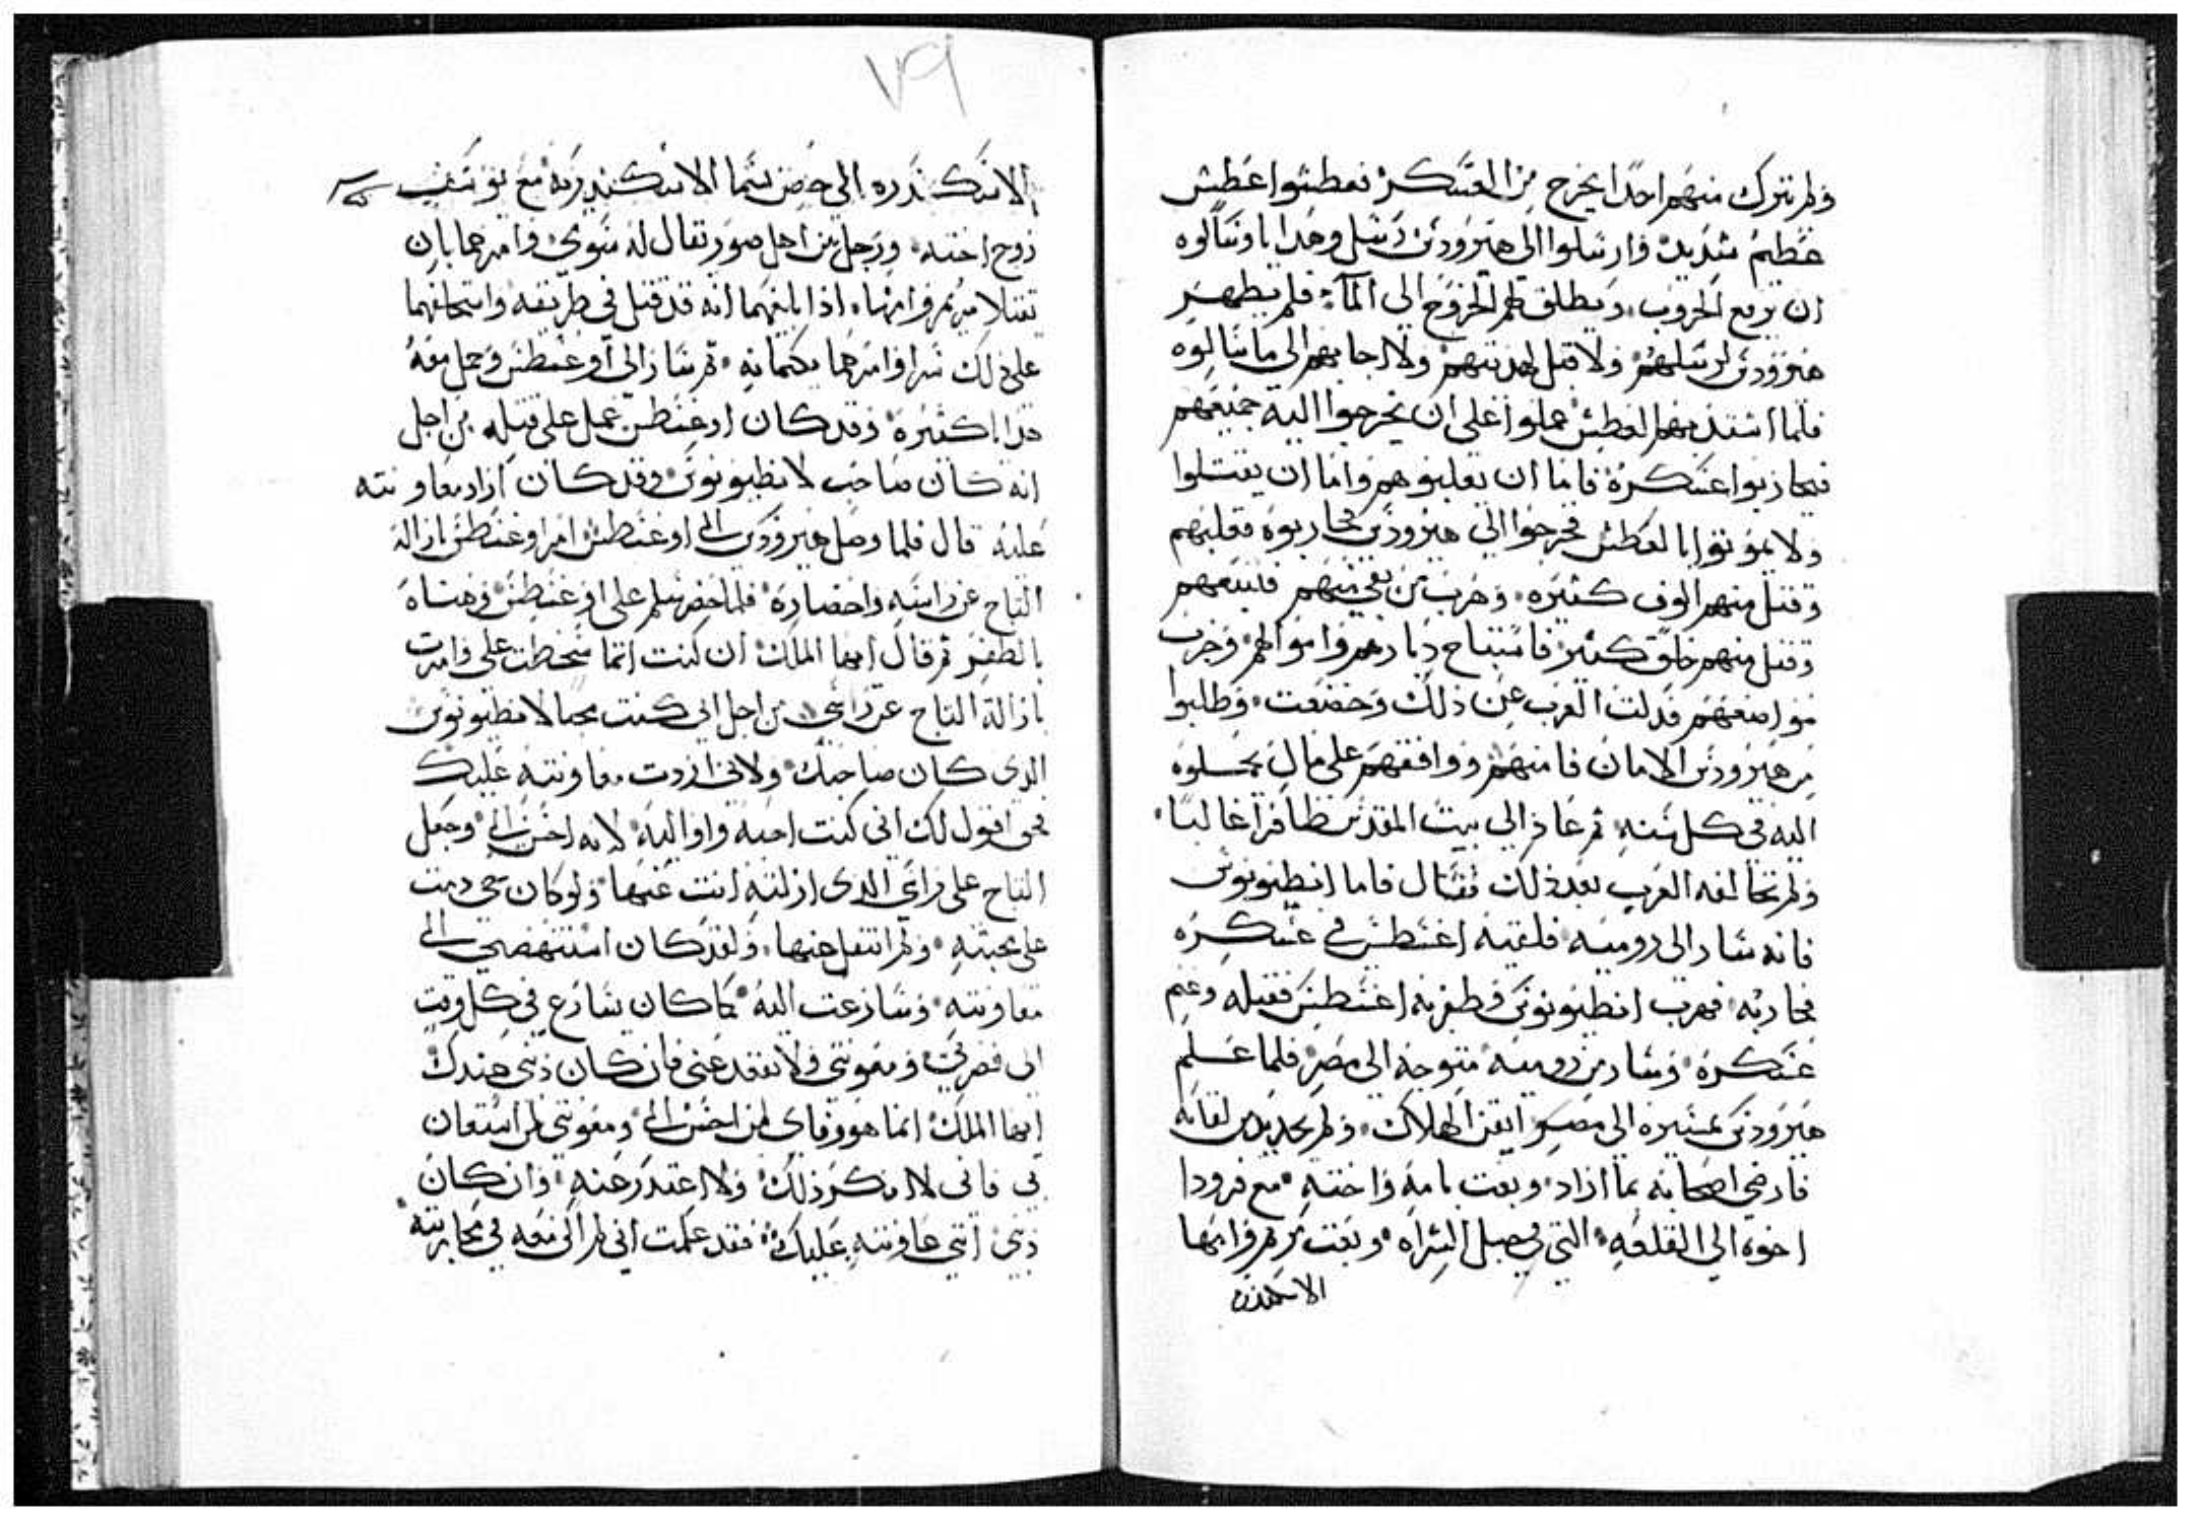 ولم يترك منهم احدا يخرج من العسكر فعطشوا عطش
عظيم شديد وارسلوا الى هيرودس رسل وهدايا وسالوه
ان يرفع الحروب ويطلق لهم الخروج الى المآ فلم يظهر
هيرودس لرسلهم ولا قبل هديتهم ولا اجابهم الى ما سالوه
فلما اشتد بهم العطش عملوا على ان يخرجوا اليه جميعهم
فيحاربوا عسكره فاما ان يغلبوهم واما ان يقتلوا
ولا يموتوا بالعطش فخرجوا الي هيرودس فحاربوه فغلبهم
وقتل منهم الوف كثيره وهرب من بقي منهم فتبعهم
وقتل منهم خلق كثير فاستباح ديارهم واموالهم وخرب
مواضعهم فدلت العرب عن ذلك وخضعت وطلبوا
من هيرودس الامان فامنهم ووافقهم على مال يحملوه
اليه في كل سنه ثم عاد الى بيت المقدس ظافرا غالبا
ولم تخالفه العرب بعد ذلك فقال فاما انطيونوس
فانه سار الى روميه فلقيه اغسطس في عسكره
فحاربه فهرب انطيونوس فظفر به اغسطس فقتله وغنم
عسكره وسار من روميه متوجه الى مصر فلما علم
هيرودس بمسيره الى مصر ايقن الهلاك ولم يجد بد من لقايه
فارضى اصحابه بما اراد وبعث بامه واخته مع فرودا
اخوه الي القلعه التي في جبل الشراه وبعث مريم وامها
الاسكندره
٧٩
الاسكندره الى حصن يسما الاسكندريه مع يوسف
زوج اخته ورجل من اهل صور يقال له سوى وامرهما بان
تقتلا مريم وامها اذا بلغهما انه قد قتل في طريقه واستحلفهما
على ذلك سرا وامرهما بكتمانه ثم سار الى اوغسطس وحمل معه
هدايا كثيره وقد كان اوغسطس عمل على قتله من اجل
انه كان صاحب لانطيونوس وقد كان اراد معاونته
عليه قال فلما وصل هيرودس الى اوغسطس امر اوغسطس بازالة
التاج عن راسه واحضاره فلما حضر سلم على اوغسطس وهناه
بالظفر ثم قال ايها الملك ان كنت انما سخطت علي وامرت
بازالة التاج عن راسي من اجل اني كنت محبا لانطيونوس
الدى كان صاحبك ولاني اردت معاونته عليك
فحق اقول لك اني كنت احبه واواليه لانه احسن الي وجعل
التاج على راسي الدى ازلته انت عنها ولو كان حي دمت
على محبته ولم انتقل عنها ولقد كان استنهضني الى
معاونته وسارعت اليه كما كان يسارع في كل وقت
الى نصرتي ومعونتي ولا يقعد عني فان كان ذنبي عندك
ايها الملك انما هو وفاى لمن احسن الي ومعونتي لمن استعان
بي فاني لا انكر ذلك ولا اعتدر عنه وان كان
ذنبي انني عاونته عليك فقد علمت اني لم اكن معه في محاربته